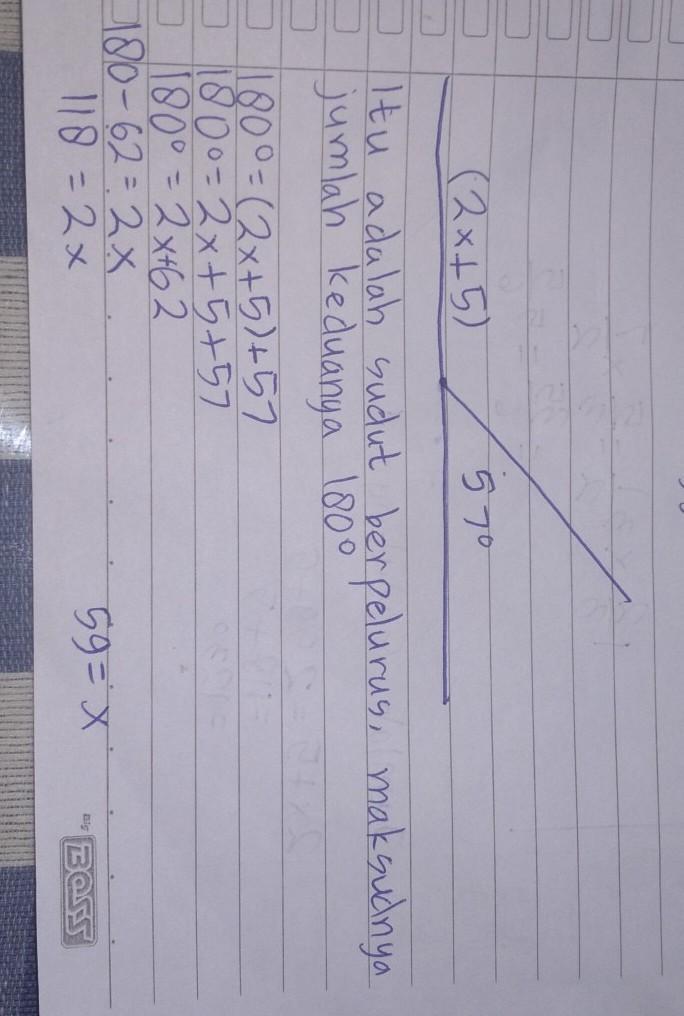 (2x+5) 57°
Itu adalah sudut berpelurus, maksudnya
jumlah keduanya 180°
180° = (2x+5)+57
180° = 2x+5+57
180° = 2x+62
180-62 = 2x
118 = 2x 59 = x
BIG BOSS